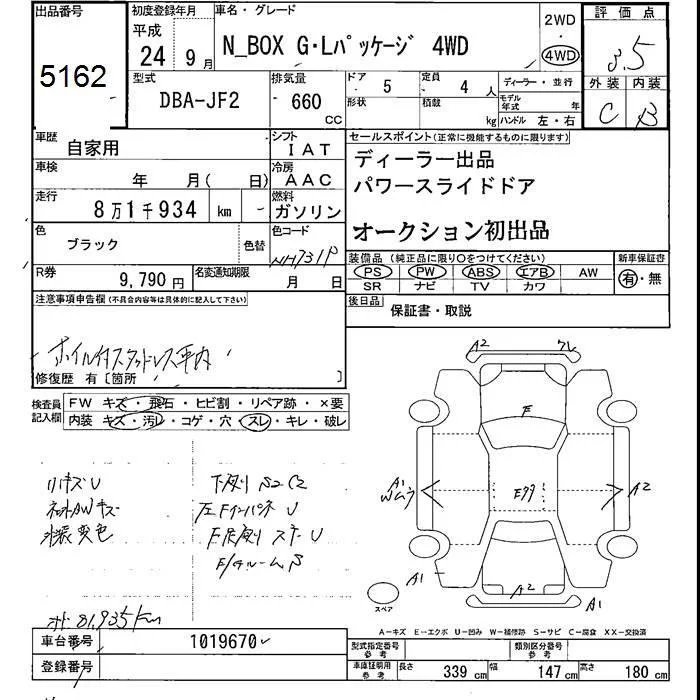 出品番号
5162
初度登録年月
平成
24 9月
車名・グレード
N_BOX G・Lパッケージ 4WD
2WD
4WD
評価点
3.5
外装 内装
C B
型式
DBA-JF2
排気量
660
CC
ドア 5
形状
定員 4 人
積載 kg
ディーラー・並行
モデル年式 年
ハンドル 左・右
車歴
自家用
シフト
IAT
車検
年 月( 日)
冷房
AAC
走行
8万1千934 km
燃料
ガソリン
色
ブラック
色替
色コード
NH731P
R券
9,790 円
名変通知期限
月 日
セールスポイント(正常に機能するものに限ります)
ディーラー出品
パワースライドドア
オークション初出品
装備品(純正品に限り○をつけてください)
PS PW ABS エアB AW
SR ナビ TV カワ
新車保証書
有・無
後日品
保証書・取説
注意事項申告欄(不具合内容等は具体的に記入して下さい)
ホイル付スタッドレス車内
修復歴 有〔箇所 〕
検査員記入欄
FW キズ・飛石・ヒビ割・リペア跡・×要
内装 キズ・汚レ・コゲ・穴・スレ・キレ・破レ
リキズU
外装変色
下廻り S2 C2
81,935km
A2
F
A1
A2
A1
A2
A1
スペア
A-キズ E-エクボ U-凹み W-補修跡 S-サビ C-腐食 XX-交換済
車台番号
1019670
登録番号
型式指定番号
参考
類別区分番号
参考
車庫証明用
参考
長さ 339 cm 幅 147 cm 高さ 180 cm